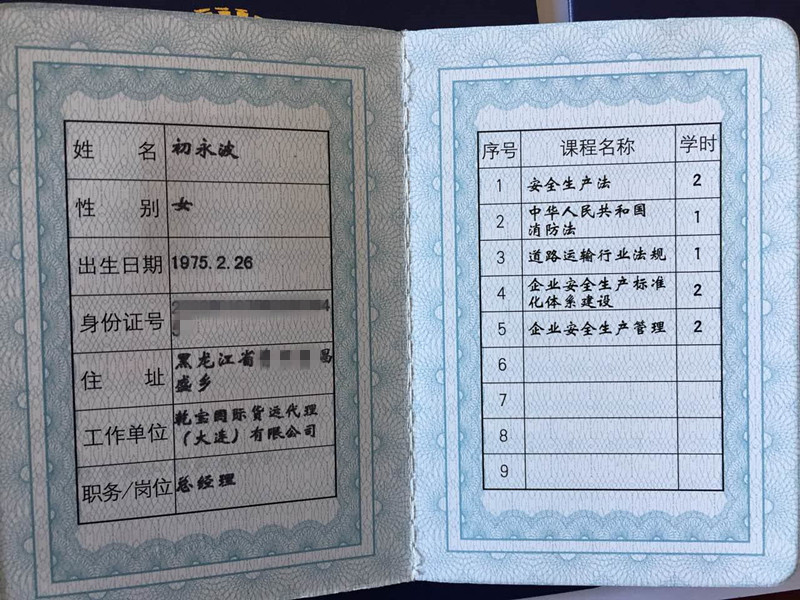 姓 名 初永波
性 别 女
出生日期 1975.2.26
身份证号
住 址 黑龙江省 昌
盛乡
工作单位 乾宝国际货运代理
（大连）有限公司
职务/岗位 总经理
序号 课程名称 学时
1 安全生产法 2
2 中华人民共和国
消防法 1
3 道路运输行业法规 1
4 企业安全生产标准
化体系建设 2
5 企业安全生产管理 2
6
7
8
9